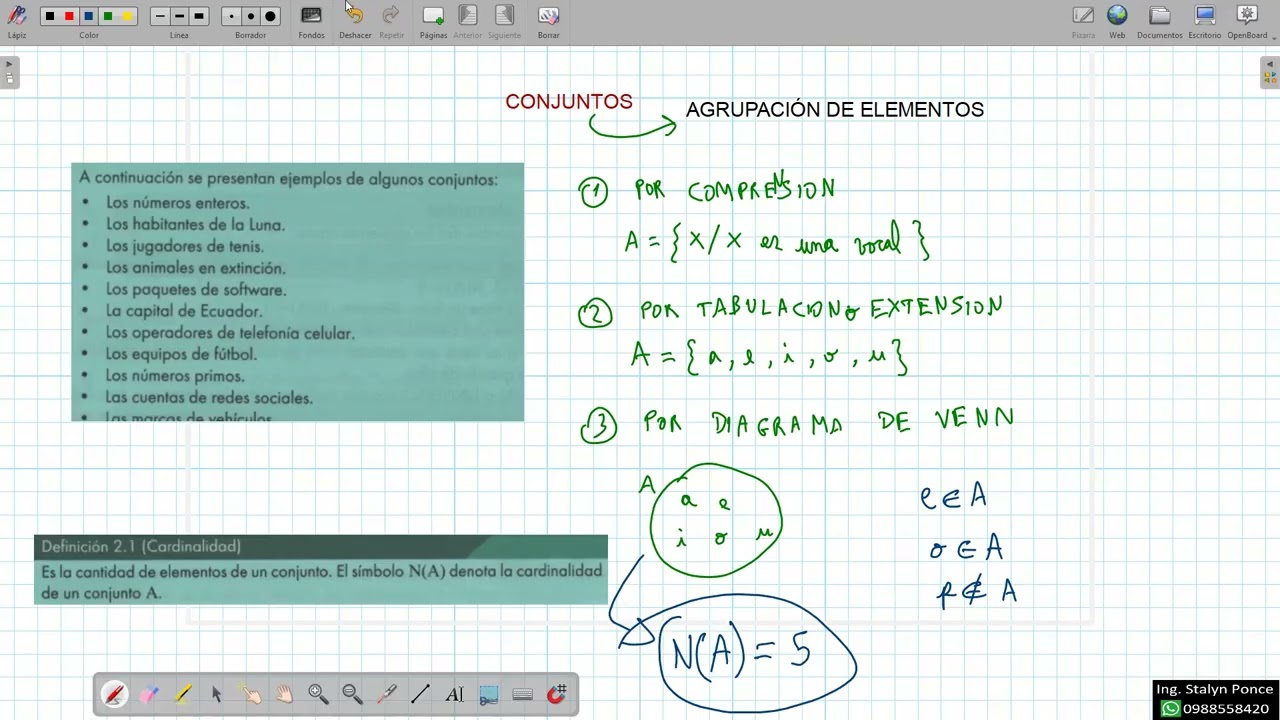 Lápiz
Color
Línea
Borrador
Fondos
Deshacer
Repetir
Páginas
Anterior
Siguiente
Borrar
Pizarra
Web
Documentos
Escritorio
OpenBoard
CONJUNTOS
AGRUPACIÓN DE ELEMENTOS
A continuación se presentan ejemplos de algunos conjuntos:
• Los números enteros.
• Los habitantes de la Luna.
• Los jugadores de tenis.
• Los animales en extinción.
• Los paquetes de software.
• La capital de Ecuador.
• Los operadores de telefonía celular.
• Los equipos de fútbol.
• Los números primos.
• Las cuentas de redes sociales.
• Las marcas de vehículos
1 POR COMPRENSION
A = { X / X es una vocal }
2 POR TABULACION o EXTENSION
A = { a, e, i, o, u }
3 POR DIAGRAMA DE VENN
A
a e
i o u
e ∈ A
o ∈ A
p ∉ A
Definición 2.1 (Cardinalidad)
Es la cantidad de elementos de un conjunto. El símbolo N(A) denota la cardinalidad
de un conjunto A.
N(A) = 5
Ing. Stalyn Ponce
0988558420